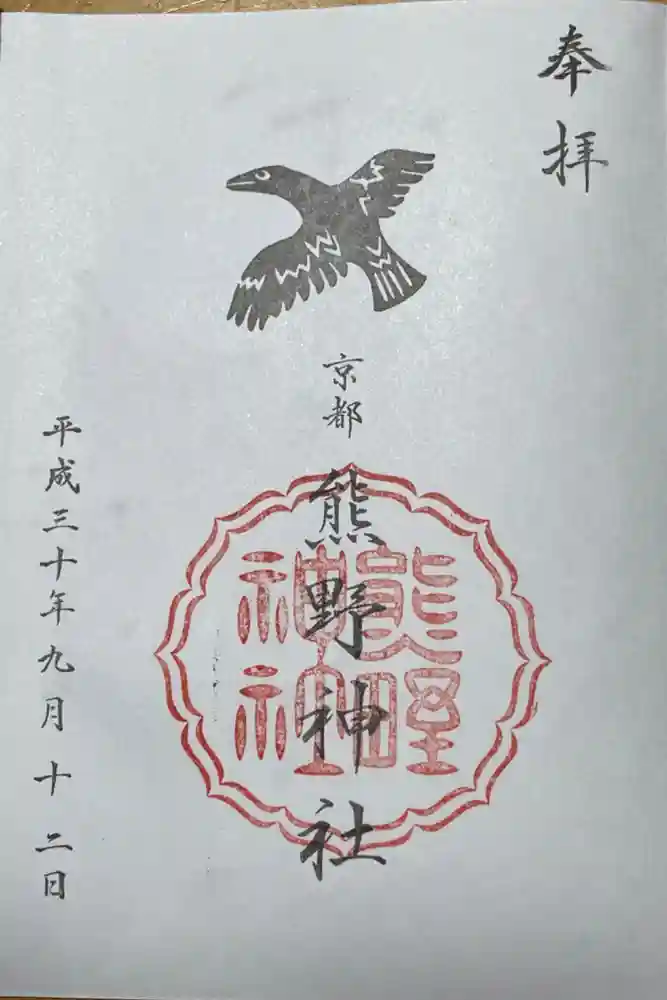 奉拝
京都
熊野神社
熊野神社
平成三十年九月十二日